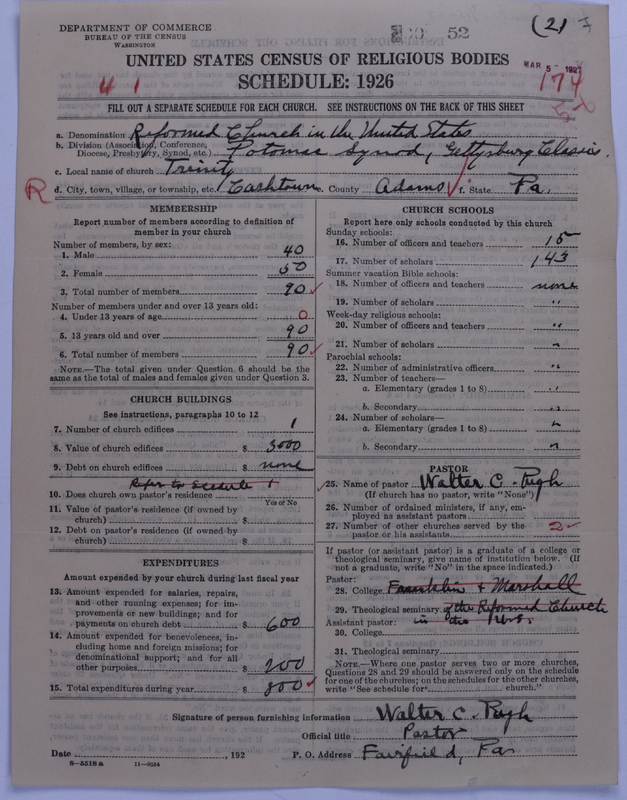 DEPARTMENT OF COMMERCE
BUREAU OF THE CENSUS
WASHINGTON
52
(21
UNITED STATES CENSUS OF RELIGIOUS BODIES
MAR 5 1927
SCHEDULE: 1926
4 1
174
52
FILL OUT A SEPARATE SCHEDULE FOR EACH CHURCH. SEE INSTRUCTIONS ON THE BACK OF THIS SHEET
a. Denomination Reformed Church in the United States
b. Division (Association, Conference, Diocese, Presbytery, Synod, etc.) Potomac Synod, Gettysburg Classis.
c. Local name of church Trinity
R
d. City, town, village, or township, etc. Cashtown e. County Adams f. State Pa.
MEMBERSHIP
Report number of members according to definition of
member in your church
Number of members, by sex:
1. Male 40
2. Female 50
3. Total number of members 90
Number of members under and over 13 years old:
4. Under 13 years of age 0
5. 13 years old and over 90
6. Total number of members 90
NOTE.—The total given under Question 6 should be
same as the total of males and females given under Question 3.
CHURCH BUILDINGS
See instructions, paragraphs 10 to 12
7. Number of church edifices 1
8. Value of church edifices $ 3000
9. Debt on church edifices $ none
Refer to Schedule 1
10. Does church own pastor's residence
Yes or No
11. Value of pastor's residence (if owned by
church) $
12. Debt on pastor's residence (if owned by
church) $
EXPENDITURES
Amount expended by your church during last fiscal year
13. Amount expended for salaries, repairs,
and other running expenses; for im-
provements or new buildings; and for
payments on church debt $ 600
14. Amount expended for benevolences, in-
cluding home and foreign missions; for
denominational support; and for all
other purposes $ 200
15. Total expenditures during year $ 800
CHURCH SCHOOLS
Report here only schools conducted by this church
Sunday schools:
16. Number of officers and teachers 15
17. Number of scholars 143
Summer vacation Bible schools:
18. Number of officers and teachers none
19. Number of scholars "
Week-day religious schools:
20. Number of officers and teachers "
21. Number of scholars "
Parochial schools:
22. Number of administrative officers "
23. Number of teachers—
a. Elementary (grades 1 to 8) "
b. Secondary "
24. Number of scholars—
a. Elementary (grades 1 to 8) "
b. Secondary "
PASTOR
25. Name of pastor Walter C. Pugh
(If church has no pastor, write "None")
26. Number of ordained ministers, if any, em-
ployed as assistant pastors
27. Number of other churches served by the
pastor or his assistants 2
If pastor (or assistant pastor) is a graduate of a college or
theological seminary, give name of institution below. (If
not a graduate, write "No" in the space indicated.)
Pastor:
28. College Franklin & Marshall
29. Theological seminary of the Reformed Church
Assistant pastor: in the U.S.
30. College
31. Theological seminary
NOTE.—Where one pastor serves two or more churches,
Questions 28 and 29 should be answered only on the schedule
for one of the churches; on the schedules for the other churches,
write "See schedule for church."
Signature of person furnishing information Walter C. Pugh
Official title Pastor
Date , 192 P. O. Address Fairfield, Pa
8—5518 a 11—9054